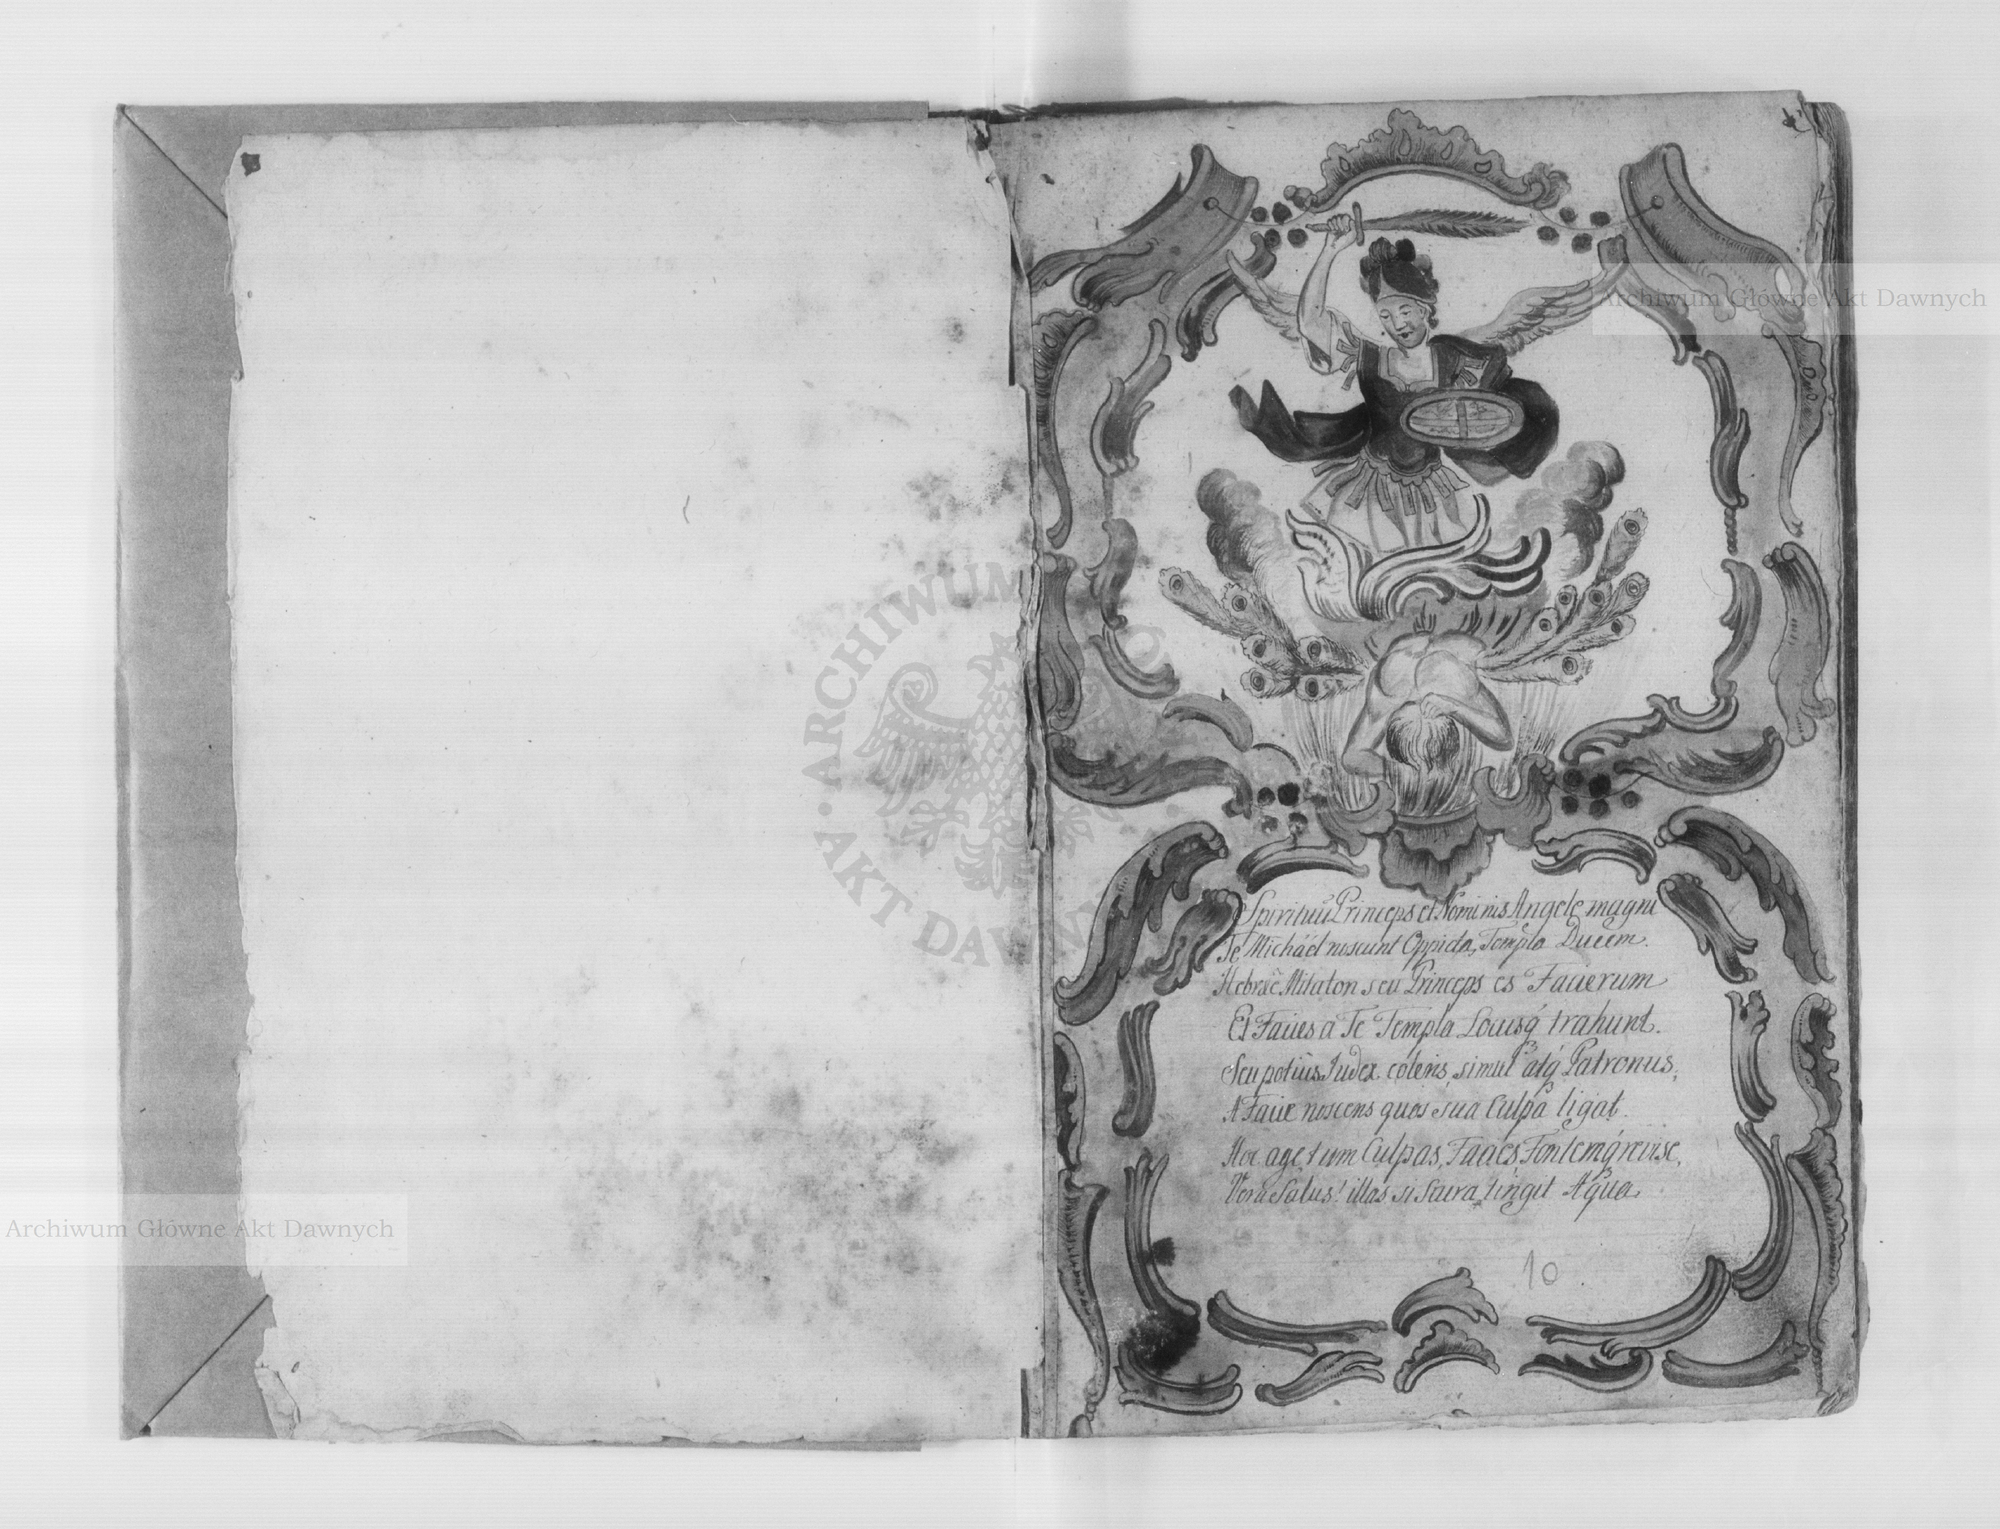 Archiwum Główne Akt Dawnych
ARCHIWUM GŁÓWNE AKT DAWNYCH
Spirituū Princeps et Nominis Angele magni
Te Michäel noscunt Oppida, Templa Ducem.
Hebraĉe Mitaton seu Princeps es Facierum
Et Facies a Te Templa Locusq́ trahunt.
Seu potius Iudex coleris, simul atq́ Patronus,
A Facie noscens quos sua Culpa ligat.
Hoc age, tum Culpas, Facies, Fontemq́ revise,
Vera Salus! illas si Sacra tingit Aqua.
10
Archiwum Główne Akt Dawnych